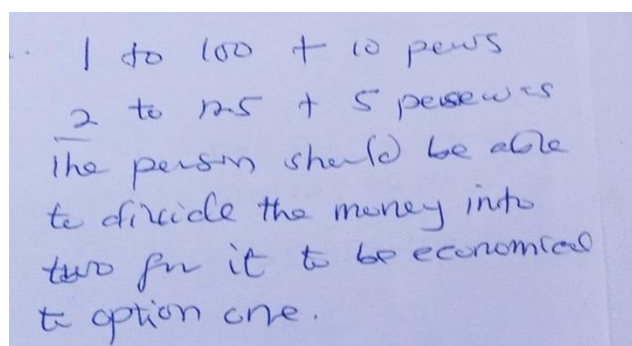 1 to 100 + 10 pews
2 to 125 + 5 pesewas
The person should be able
to divide the money into
two for it to be economical
to option one.